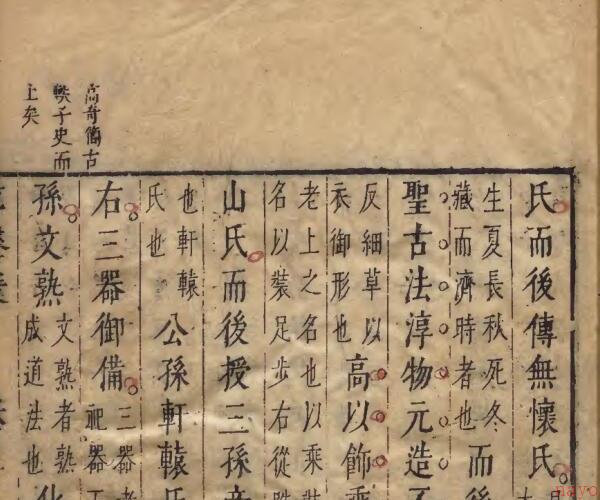 高奇簡古
軼子史而
上矣
氏而後傳無懷氏
生夏長秋死冬
藏而濟時者也
而後
聖古法淳物元造
反細草以
衣御形也
高以飾
老上之名也以乘
名以裝足步右從
山氏而後授三孫
也軒轅
氏也
公孫軒轅氏
右三器御備
三器者
祀器
孫文熟
文熟者熟
成道法也
化
navo